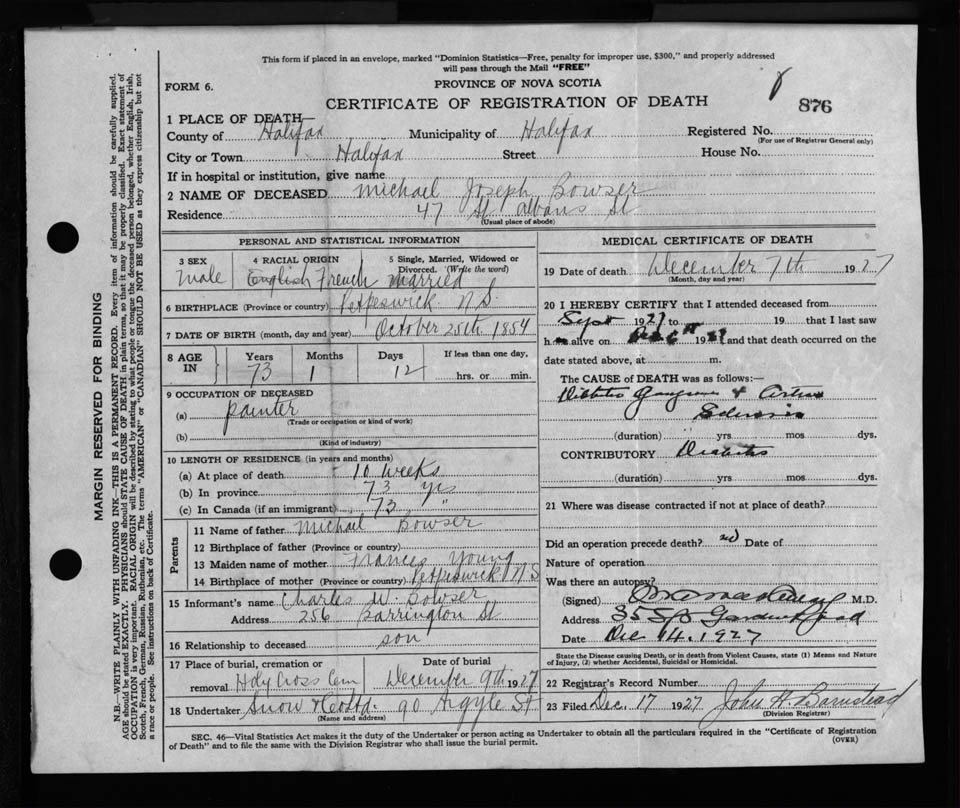 This form if placed in an envelope, marked "Dominion Statistics—Free, penalty for improper use, $300," and properly addressed
will pass through the Mail "FREE"
FORM 6.
PROVINCE OF NOVA SCOTIA
CERTIFICATE OF REGISTRATION OF DEATH
876
1 PLACE OF DEATH—
County of Halifax Municipality of Halifax Registered No.
(For use of Registrar General only)
City or Town Halifax Street House No.
If in hospital or institution, give name
2 NAME OF DECEASED Michael Joseph Bowser
Residence 47 St Albans St
(Usual place of abode)
PERSONAL AND STATISTICAL INFORMATION
3 SEX 4 RACIAL ORIGIN 5 Single, Married, Widowed or
Divorced. (Write the word)
Male English French Married
6 BIRTHPLACE (Province or country) Petpeswick N.S.
7 DATE OF BIRTH (month, day and year) October 25th 1854
8 AGE IN Years Months Days If less than one day,
73 1 12 hrs. or min.
9 OCCUPATION OF DECEASED
(a) painter
(Trade or occupation or kind of work)
(b)
(Kind of industry)
10 LENGTH OF RESIDENCE (in years and months)
(a) At place of death 10 weeks
(b) In province 73 yrs
(c) In Canada (if an immigrant) 73 "
Parents
11 Name of father Michael Bowser
12 Birthplace of father (Province or country)
13 Maiden name of mother Frances Young
14 Birthplace of mother (Province or country) Petpeswick N S
15 Informant's name Charles W. Bowser
Address 256 Barrington St
16 Relationship to deceased son
17 Place of burial, cremation or Date of burial
removal Holy Cross Cem December 9th 1927
18 Undertaker Snow & Co Ltd. 90 Argyle St
(Name and address)
MEDICAL CERTIFICATE OF DEATH
19 Date of death December 7th 1927
(Month, day and year)
20 I HEREBY CERTIFY that I attended deceased from
Sept 1927 to 19 that I last saw
h im alive on Dec 6th 1927 and that death occurred on the
date stated above, at m.
The CAUSE OF DEATH was as follows:—
Diabetes Gangrene & Arterio
Sclerosis
(duration) yrs mos dys.
CONTRIBUTORY Diabetes
(duration) yrs. mos. dys.
21 Where was disease contracted if not at place of death?
Did an operation precede death? no Date of
Nature of operation
Was there an autopsy?
(Signed) M.D.
Address 355 Road
Date Dec 14, 1927
State the Disease causing Death, or in death from Violent Causes, state (1) Means and Nature
of Injury, (2) whether Accidental, Suicidal or Homicidal.
22 Registrar's Record Number
23 Filed Dec. 17 1927 John A Barnstead
(Division Registrar)
SEC. 46—Vital Statistics Act makes it the duty of the Undertaker or person acting as Undertaker to obtain all the particulars required in the "Certificate of Registration
of Death" and to file the same with the Division Registrar who shall issue the burial permit.
(OVER)
MARGIN RESERVED FOR BINDING
N.B.—WRITE PLAINLY WITH UNFADING INK—THIS IS A PERMANENT RECORD. Every item of information should be carefully supplied.
AGE should be stated EXACTLY. PHYSICIANS should STATE CAUSE OF DEATH in plain terms, so that it may be properly classified. Exact statement of
OCCUPATION is very important. RACIAL ORIGIN will be described by stating to what people or tongue the deceased person belonged, whether English, Irish,
Scotch, French, German, Russian, Ruthenian, etc. The terms "AMERICAN" or "CANADIAN" SHOULD NOT BE USED as they express citizenship but not
a race or people. See instructions on back of Certificate.